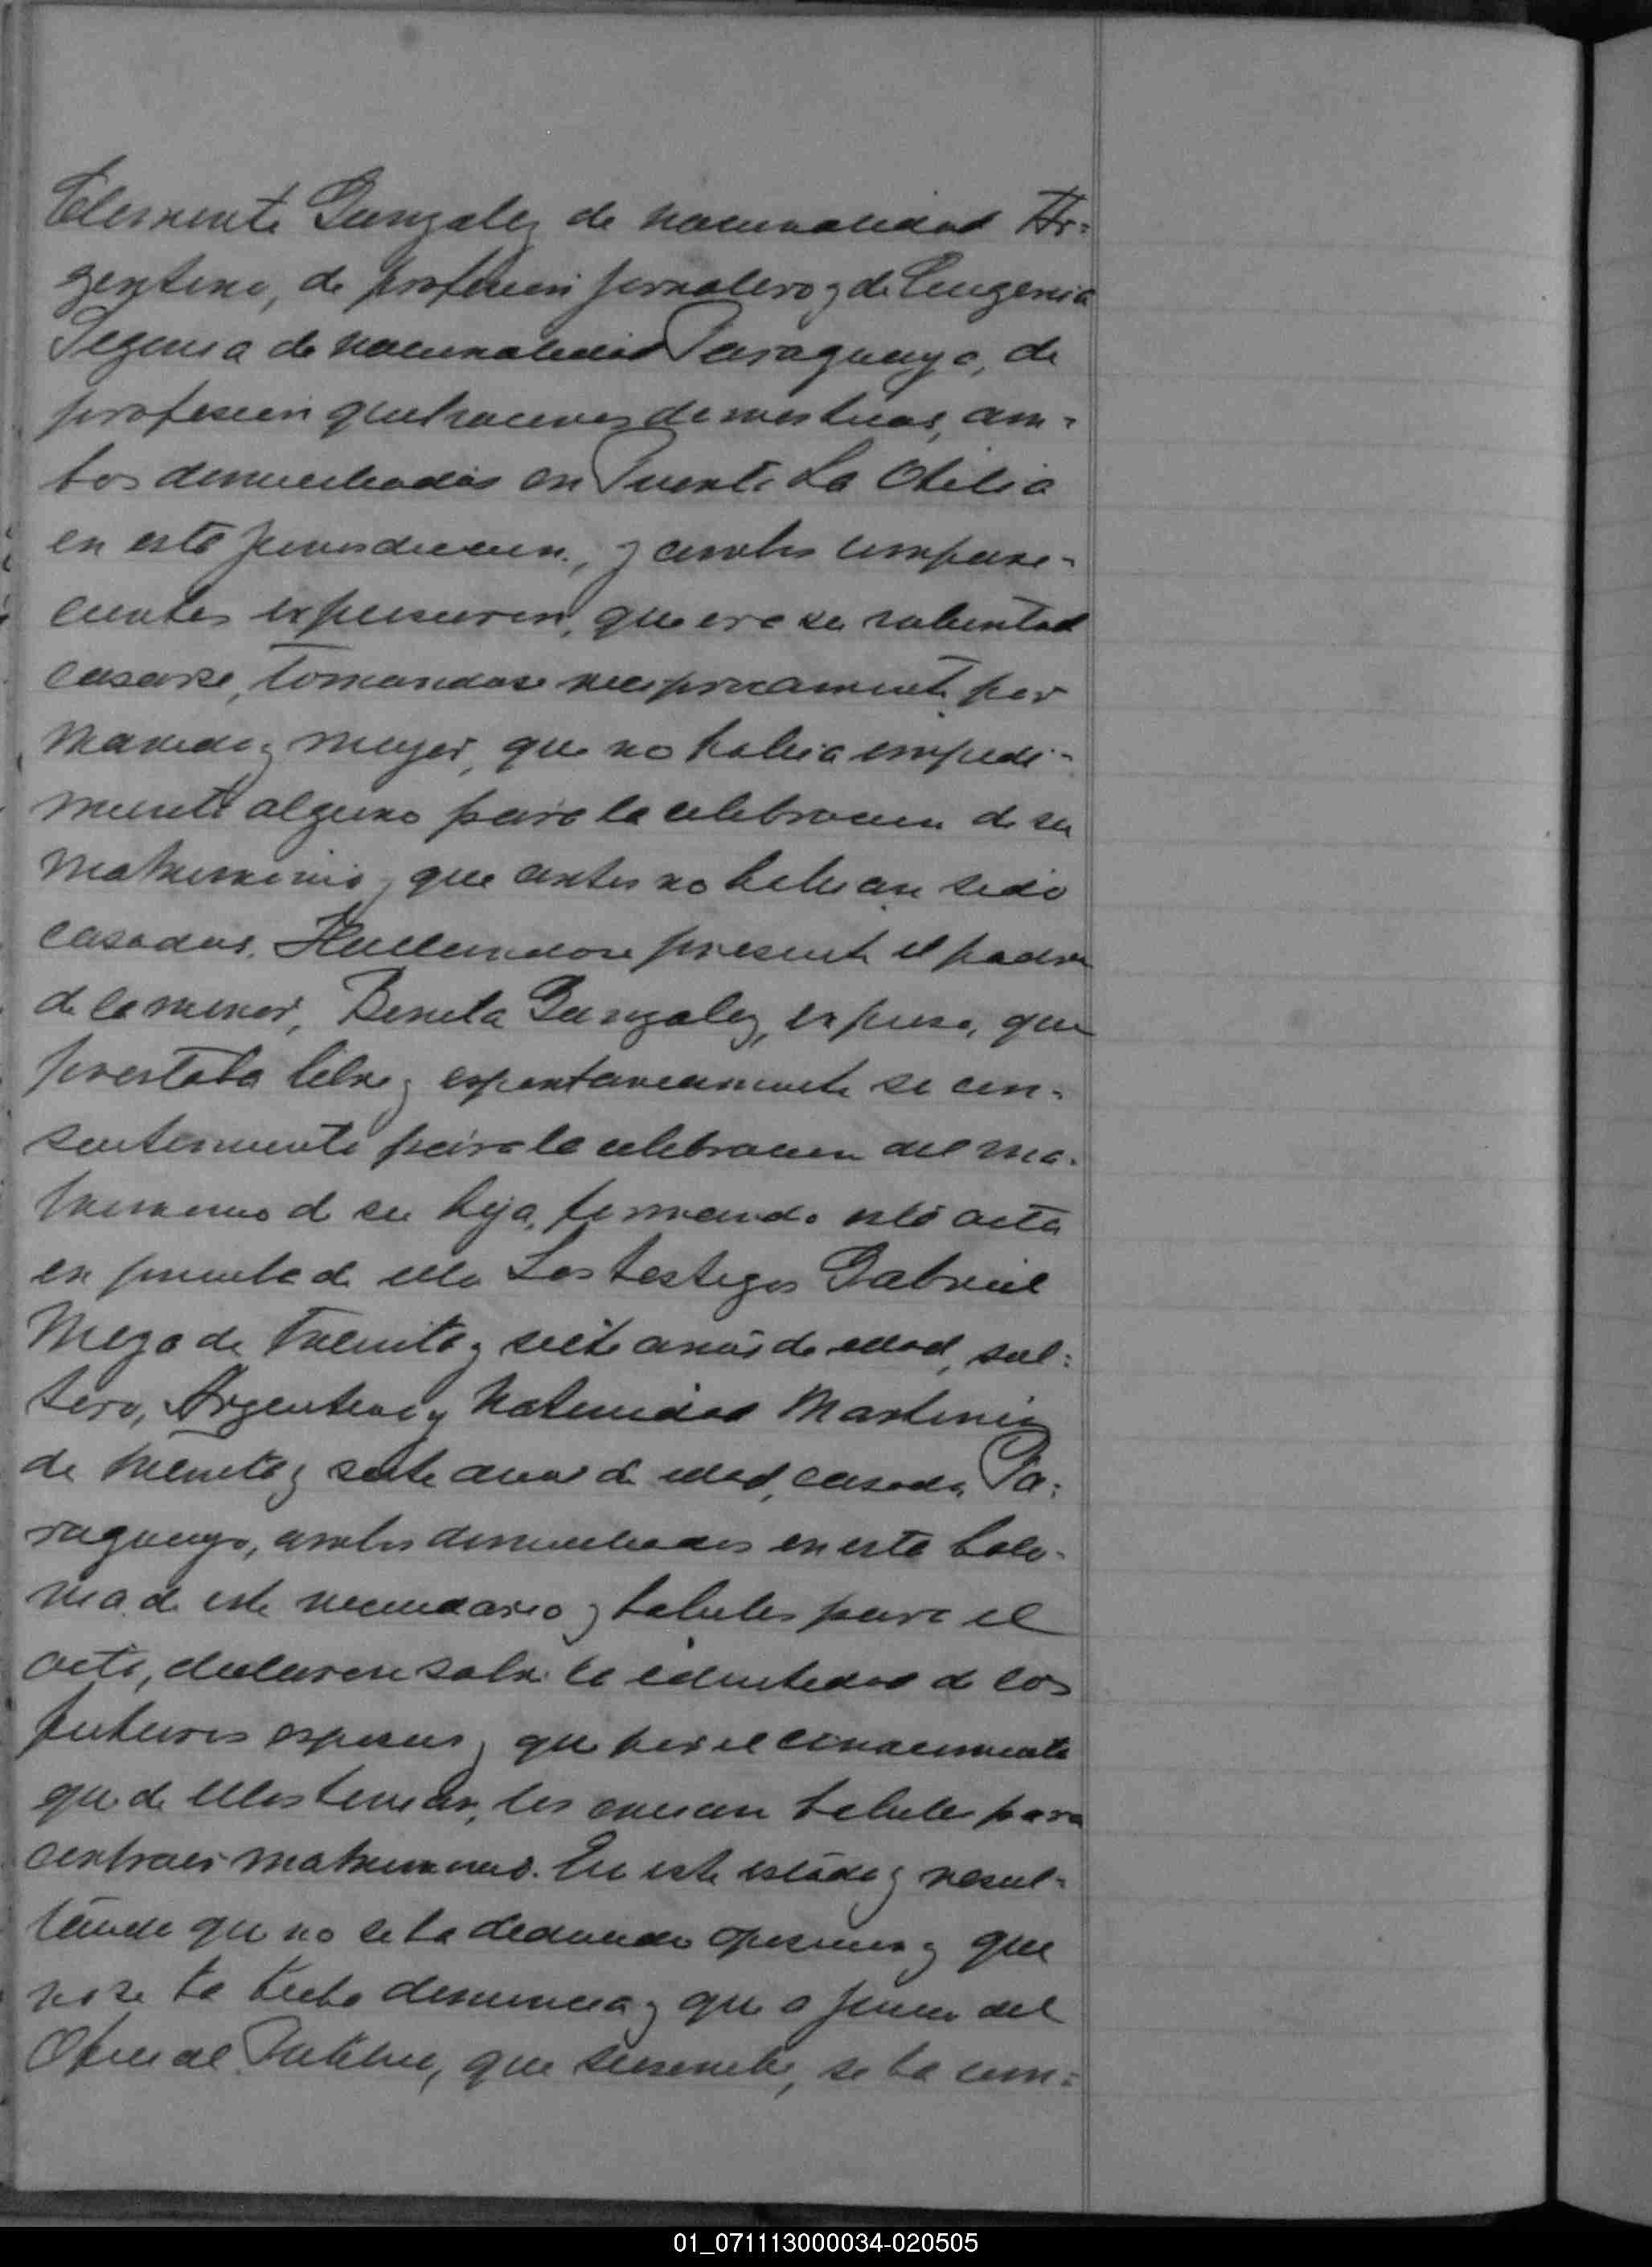 Clemente Gonzalez de nacionalidad Ar=
gentino, de profesion jornalero y de Eugenia
Segovia de nacionalidad Paraguaya, de
profesion quehaceres domesticos, am=
bos domiciliados en Puente La Otilia
en esta jurisdiccion, y ambos compare-
cientes expusieron, que era su voluntad
casarse, tomandose reciprocamente por
marido y mujer, que no habia impedi-
mento alguno para la celebracion de su
matrimonio y que antes no habian sido
casados. Hallandose presente el padre
de la menor, Benita Gonzalez, expuso, que
prestaba libre y espontaneamente su con-
sentimiento para la celebracion del ma-
trimonio de su hija, firmando esta acta
en prueba de ello Los testigos Gabriel
Meza de treinta y siete años de edad, sol=
tero, Argentino y Natividad Martinez
de treinta y siete años de edad, casado, Pa=
raguayo, ambos domiciliados en esta Colo-
nia de este vecindario y habiles para el
acto, declaran sobre la identidad de los
futuros esposos y que por el conocimiento
que de ellos tenian, los creian habiles para
contraer matrimonio. En este estado y resul=
tando que no se ha deducido oposicion y que
no se ha hecho denuncia y que a juicio del
Oficial Publico, que suscribe, se ha com=
01_071113000034-020505